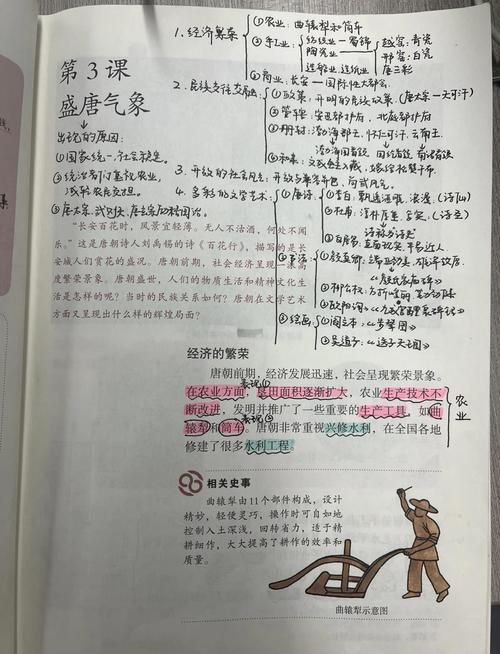 1.经济繁荣
①农业:曲辕犁和筒车
②手工业
纺织业—蜀锦
陶瓷业
造船业、造纸业
越窑:青瓷
邢窑:白瓷
唐三彩
③商业:长安—国际性大都会
第3课
盛唐气象
2.民族交往交融
①政策:开明的民族政策(唐太宗—天可汗)
②管理:安西都护府、北庭都护府
③册封:渤海郡王、怀仁可汗、云南王
④和亲:文成公主入藏,
出现的原因:
①国家统一,社会稳定。
3.开放的社会风气:
4.多彩的文学艺术
①唐诗
①李白:飘逸洒脱、浪漫(诗仙)
②杜甫:(诗圣)
③白居易:
②书法
①颜真卿:
②柳公权:
③欧阳询:
③绘画
①阎立本:《步辇图》
②吴道子:《送子天王图》
“长安百花时,风景宜轻薄。无人不沽酒,何处不闻
乐。”这是唐朝诗人刘禹锡的诗《百花行》,描写的是长
安城人们赏花的盛况。唐朝前期,社会经济呈现一派高
度繁荣景象。唐朝盛世,人们的物质生活和精神文化生
活是怎样的呢?当时的民族关系如何?唐朝在文学艺术
方面又呈现出什么样的辉煌局面?
经济的繁荣
唐朝前期,经济发展迅速,社会呈现繁荣景象。
表现①
在农业方面,垦田面积逐渐扩大,农业生产技术不
断改进,发明并推广了一些重要的生产工具,如曲
表现②
辕犁和筒车。唐朝非常重视兴修水利,在全国各地
修建了很多水利工程。
农业
相关史事
曲辕犁由11个部件构成,设计
精妙,轻便灵巧,操作时可自如地
控制入土深浅,回转省力,适于精
耕细作,大大提高了耕作的效率和
质量。
曲辕犁示意图